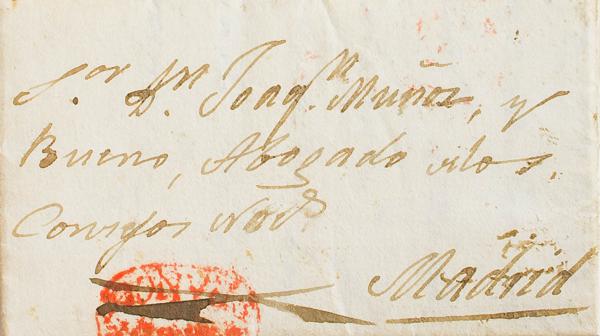 S.or D.n Joaq.n Muñoz, y
Bueno, Abogado delos,
Consejos
Madrid